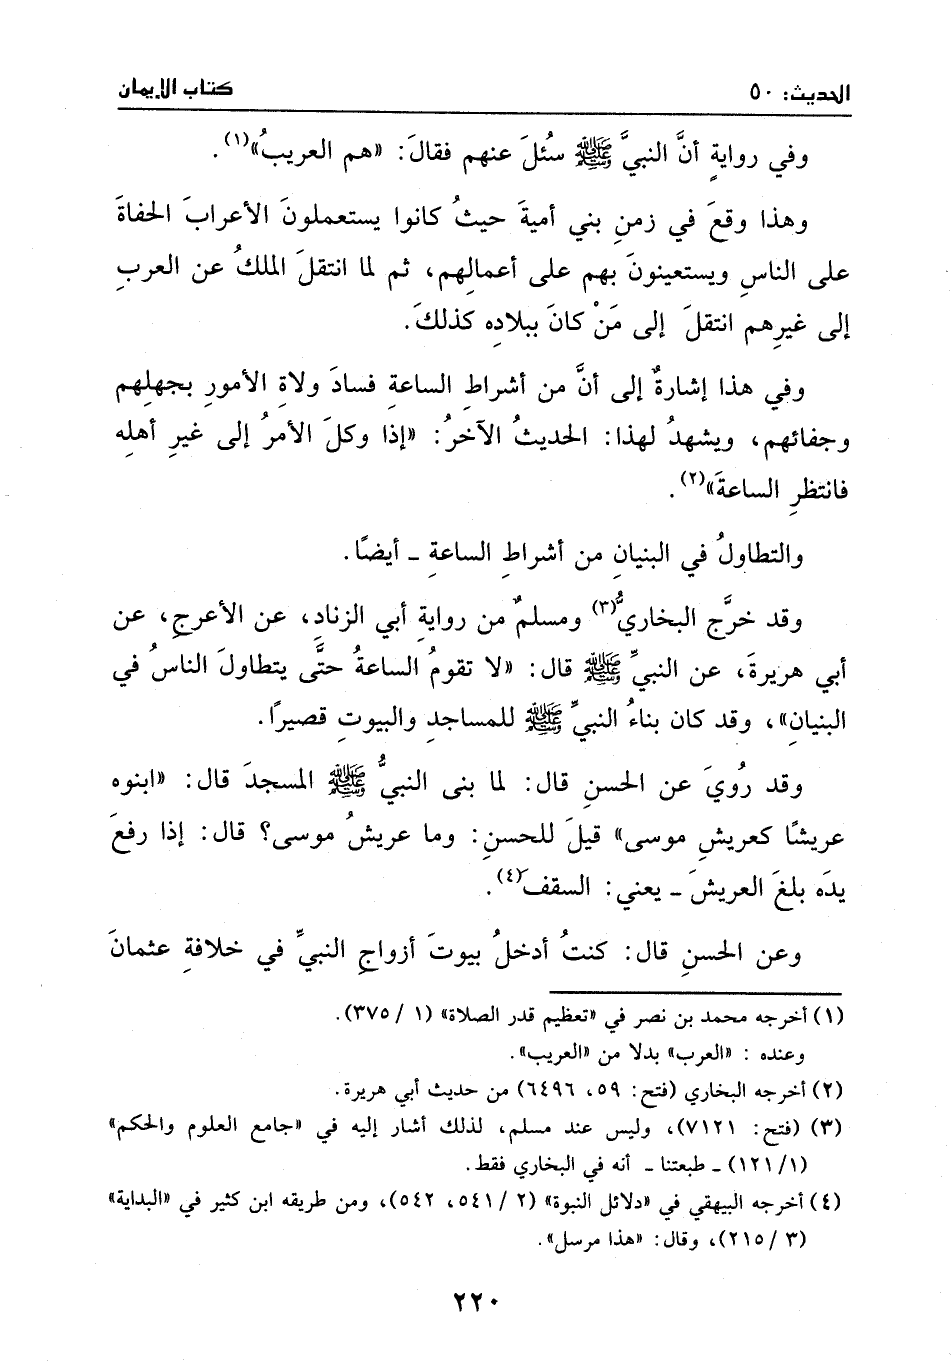 الحديث: ٥٠ كتاب الإيمان
وفي روايةٍ أنَّ النبيَّ ﷺ سُئلَ عنهم فقالَ: «هم العريبُ»(١).
وهذا وقعَ في زمنِ بني أميةَ حيثُ كانوا يستعملونَ الأعرابَ الحفاةَ
على الناسِ ويستعينونَ بهم على أعمالِهم، ثم لما انتقلَ الملكُ عن العربِ
إلى غيرِهم انتقلَ إلى مَنْ كانَ ببلادِه كذلكَ.
وفي هذا إشارةٌ إلى أنَّ من أشراطِ الساعةِ فسادَ ولاةِ الأمورِ بجهلِهم
وجفائهم، ويشهدُ لهذا: الحديثُ الآخرُ: «إذا وكلَ الأمرُ إلى غيرِ أهلِه
فانتظرِ الساعةَ»(٢).
والتطاولُ في البنيانِ من أشراطِ الساعةِ ـ أيضًا.
وقد خرَّج البخاريُّ(٣) ومسلمٌ من روايةِ أبي الزنادِ، عن الأعرجِ، عن
أبي هريرةَ، عن النبيِّ ﷺ قال: «لا تقومُ الساعةُ حتَّى يتطاولَ الناسُ في
البنيانِ»، وقد كان بناءُ النبيِّ ﷺ للمساجدِ والبيوتِ قصيرًا.
وقد رُويَ عن الحسنِ قال: لما بنى النبيُّ ﷺ المسجدَ قال: «ابنوه
عريشًا كعريشِ موسى» قيلَ للحسنِ: وما عريشُ موسى؟ قال: إذا رفعَ
يدَه بلغَ العريشَ ـ يعني: السقفَ(٤).
وعن الحسنِ قال: كنتُ أدخلُ بيوتَ أزواجِ النبيِّ في خلافةِ عثمانَ
(١) أخرجه محمد بن نصر في «تعظيم قدر الصلاة» (١ / ٣٧٥).
وعنده : «العرب» بدلا من «العريب».
(٢) أخرجه البخاري (فتح: ٥٩، ٦٤٩٦) من حديث أبي هريرة.
(٣) (فتح: ٧١٢١)، وليس عند مسلم، لذلك أشار إليه في «جامع العلوم والحكم»
(١/ ١٢١) ـ طبعتنا ـ أنه في البخاري فقط.
(٤) أخرجه البيهقي في «دلائل النبوة» (٢ / ٥٤١، ٥٤٢)، ومن طريقه ابن كثير في «البداية»
(٣ / ٢١٥)، وقال: «هذا مرسل».
٢٢٠